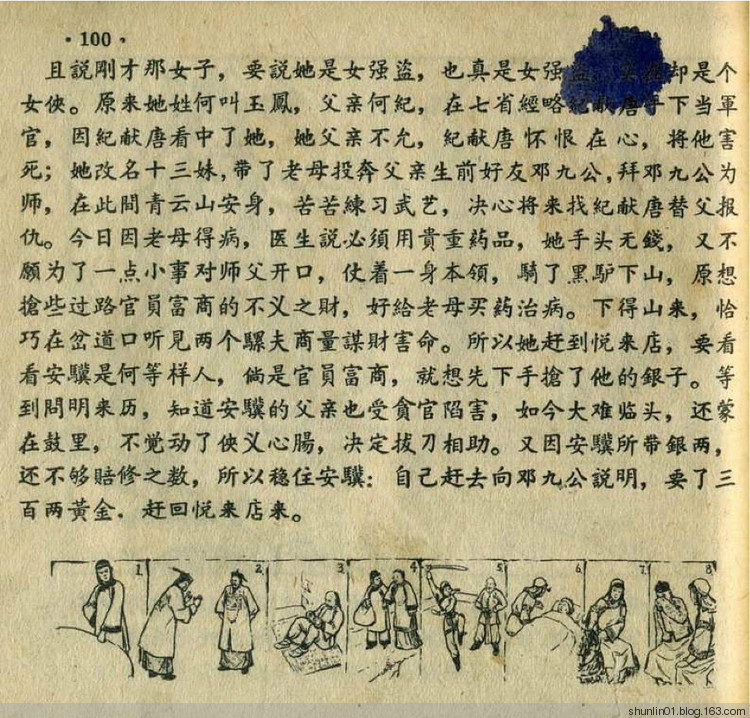 ·100·
且說刚才那女子，要說她是女强盗，也真是女强 却是个
女俠。原来她姓何叫玉鳳，父亲何紀，在七省經略 手下当軍
官，因紀献唐看中了她，她父亲不允，紀献唐怀恨在心，将他害
死；她改名十三妹，带了老母投奔父亲生前好友邓九公，拜邓九公为
师，在此間青云山安身，苦苦練习武艺，决心将来找紀献唐替父报
仇。今日因老母得病，医生說必須用貴重葯品，她手头无錢，又不
願为了一点小事对师父开口，仗着一身本領，騎了黑驴下山，原想
搶些过路官員富商的不义之財，好給老母买葯治病。下得山来，恰
巧在岔道口听見两个騾夫商量謀財害命。所以她赶到悦来店，要看
看安驥是何等样人，倘是官員富商，就想先下手搶了他的銀子。等
到問明来历，知道安驥的父亲也受貪官陷害，如今大难临头，还蒙
在鼓里，不觉动了俠义心腸，决定拔刀相助。又因安驥所带銀两，
还不够賠修之数，所以稳住安驥：自己赶去向邓九公說明，要了三
百两黃金．赶回悦来店来。
1. 2. 3. 4. 5. 6. 7. 8.
shunlin01.blog.163.com